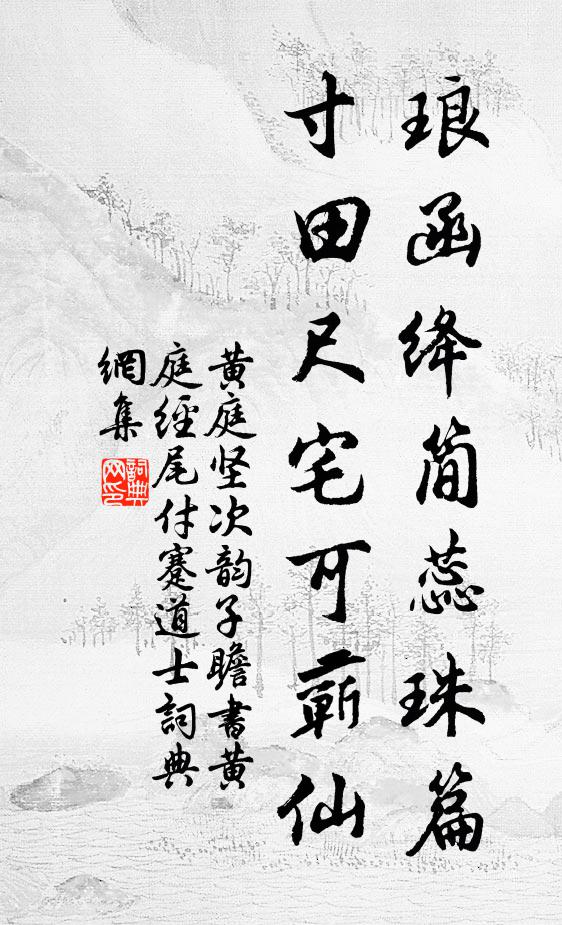 琅函绛简蕊珠篇
寸田尺宅可蕲仙
黄庭坚次韵子瞻書黄
庭經尾付蹇道士詞典
網集
詞典
网印